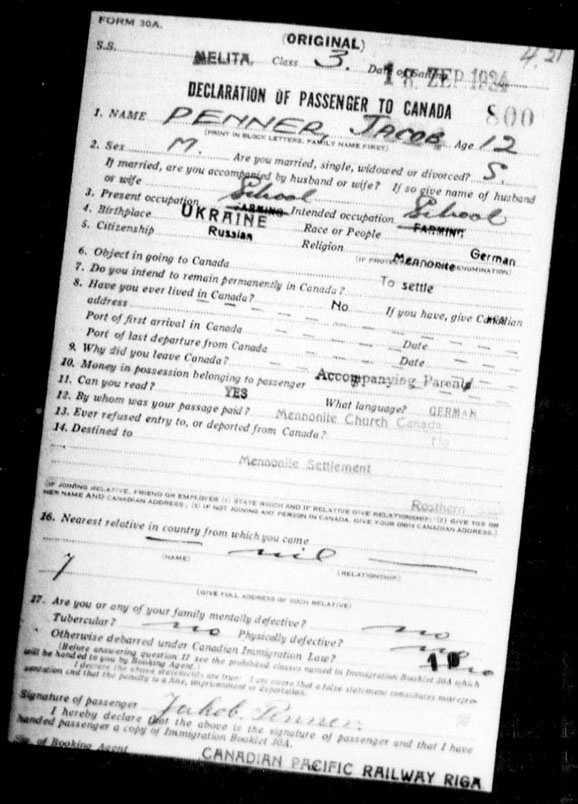 FORM 30A.
(ORIGINAL)
4.21
S.S. MELITA. Class 3. Date of Sailing 18 ZEP 1924
DECLARATION OF PASSENGER TO CANADA 800
1. NAME PENNER, JACOB Age 12
(PRINT IN BLOCK LETTERS, FAMILY NAME FIRST)
2. Sex M. Are you married, single, widowed or divorced? S.
If married, are you accompanied by husband or wife? If so give name of husband
or wife
3. Present occupation School FARMING Intended occupation School FARMING
4. Birthplace UKRAINE Race or People German
5. Citizenship Russian Religion Mennonite
(IF PROTESTANT DENOMINATION)
6. Object in going to Canada To settle
7. Do you intend to remain permanently in Canada?
8. Have you ever lived in Canada? No If you have, give Canadian
address
Port of first arrival in Canada Date
Port of last departure from Canada Date
9. Why did you leave Canada?
10. Money in possession belonging to passenger Accompanying Parents
11. Can you read? YES What language? GERMAN
12. By whom was your passage paid? Mennonite Church Canada
13. Ever refused entry to, or deported from Canada?
14. Destined to
Mennonite Settlement
Rosthern
(IF JOINING RELATIVE, FRIEND OR EMPLOYER (1) STATE WHICH AND IF RELATIVE GIVE RELATIONSHIP; (2) GIVE HIS OR
HER NAME AND CANADIAN ADDRESS; (3) IF NOT JOINING ANY PERSON IN CANADA, GIVE YOUR OWN CANADIAN ADDRESS.)
16. Nearest relative in country from which you came
nil
(NAME) (RELATIONSHIP)
7
(GIVE FULL ADDRESS OF SUCH RELATIVE)
17. Are you or any of your family mentally defective? no
Tubercular? no Physically defective? no
Otherwise debarred under Canadian Immigration Law? no
(Before answering question 17 see the prohibited classes named in Immigration Booklet 30A which
will be handed to you by Booking Agent.)
I declare the above statements are true: I am aware that a false statement constitutes misrepre-
sentation and that the penalty is a fine, imprisonment or deportation.
Signature of passenger Jakob Penner.
I hereby declare that the above is the signature of passenger and that I have
handed passenger a copy of Immigration Booklet 30A.
of Booking Agent CANADIAN PACIFIC RAILWAY RIGA